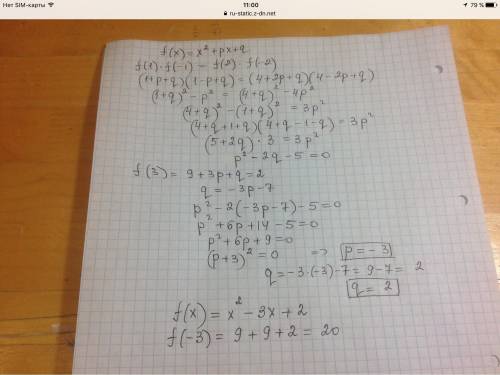 Нет SIM-карты 11:00 79 %
ru-static.z-dn.net
f(x) = x² + px + q
f(1) · f(-1) = f(2) · f(-2)
(1+p+q)(1-p+q) = (4+2p+q)(4-2p+q)
(1+q)² - p² = (4+q)² - 4p²
(4+q)² - (1+q)² = 3p²
(4+q+1+q)(4+q-1-q) = 3p²
(5+2q) · 3 = 3p²
p² - 2q - 5 = 0
f(3) = 9 + 3p + q = 2
q = -3p - 7
p² - 2(-3p-7) - 5 = 0
p² + 6p + 14 - 5 = 0
p² + 6p + 9 = 0
(p+3)² = 0 => p = -3
q = -3·(-3) - 7 = 9 - 7 = 2
q = 2
f(x) = x² - 3x + 2
f(-3) = 9 + 9 + 2 = 20